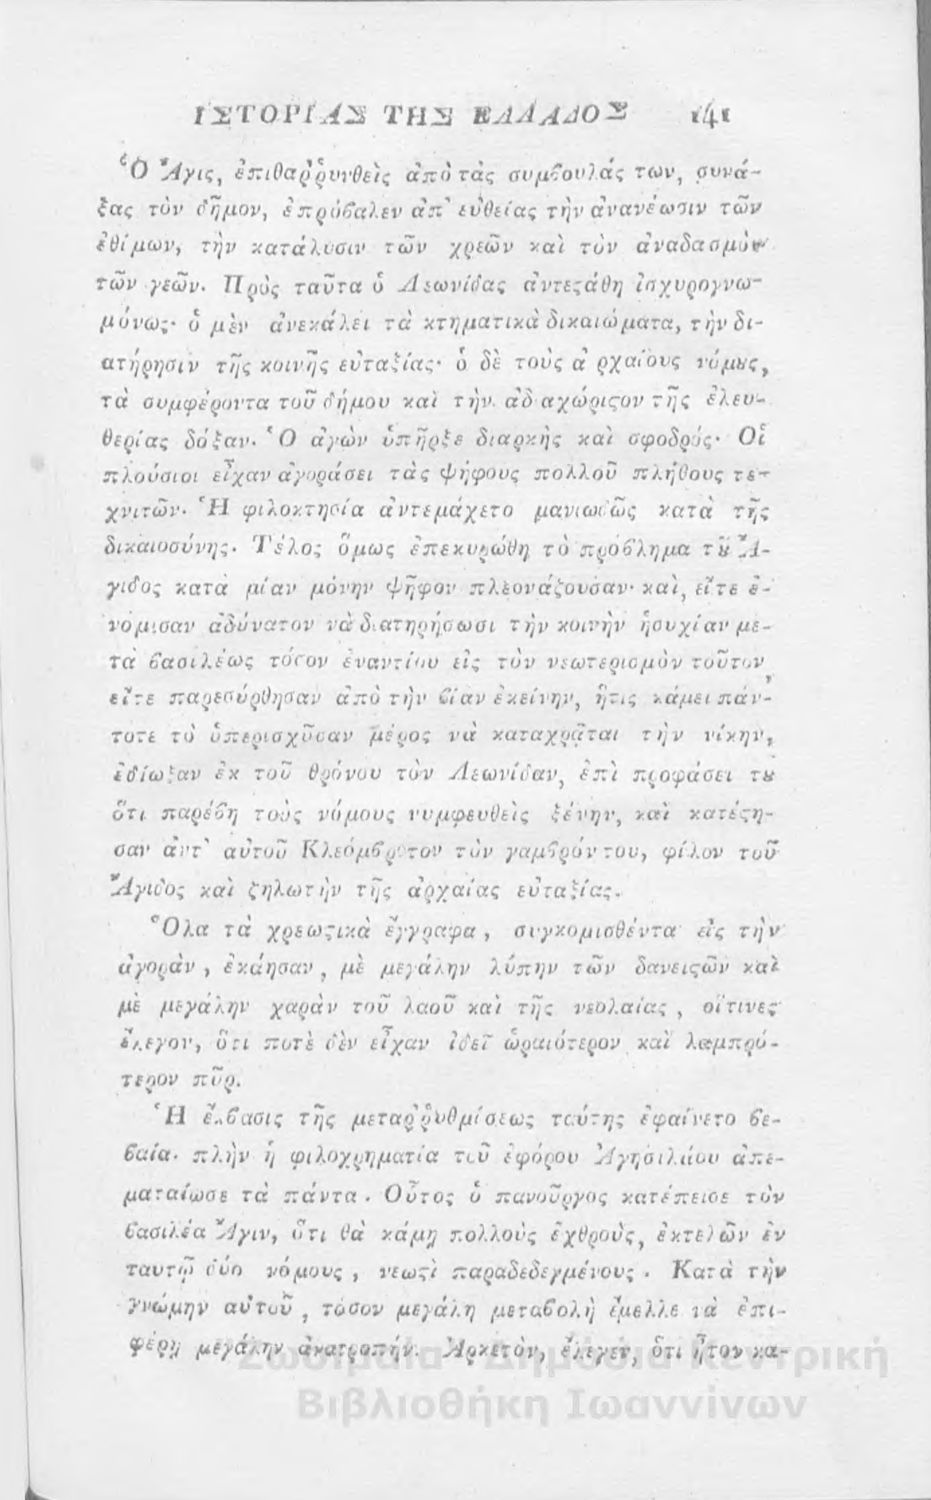 ἹΣΤΟΡΙΑΣ ΤΗΣ ΕΛΛΑΔΟΣ 141
Ὁ Ἄγις, ἐπιθαῤῥυνθεὶς ἀπὸ τὰς συμϐουλάς των, συνά-
ξας τὸν δῆμον, ἐπρόϐαλεν ἀπ' εὐθείας τὴν ἀνανέωσιν τῶν
ἐθίμων, τὴν κατάλυσιν τῶν χρεῶν καὶ τὸν ἀναδασμὸν
τῶν γεῶν. Πρὸς ταῦτα ὁ Λεωνίδας ἀντεϛάθη ἰσχυρογνω-
μόνως· ὁ μὲν ἀνεκάλει τὰ κτηματικὰ δικαιώματα, τὴν δι-
ατήρησιν τῆς κοινῆς εὐταξίας· ὁ δὲ τοὺς ἀρχαίους νόμȣς,
τὰ συμφέροντα τοῦ δήμου καὶ τὴν ἀδιαχώριϛον τῆς ἐλευ-
θερίας δόξαν. Ὁ ἀγὼν ὑπῆρξε διαρκὴς καὶ σφοδρός· Οἱ
πλούσιοι εἶχαν ἀγοράσει τὰς ψήφους πολλοῦ πλήθους τε-
χνιτῶν. Ἡ φιλοκτησία ἀντεμάχετο μανιωδῶς κατὰ τῆς
δικαιοσύνης. Τέλος ὅμως ἐπεκυρώθη τὸ πρόϐλημα τȣ͂ Ἄ-
γιδος κατὰ μίαν μόνην ψῆφον πλεονάζουσαν· καὶ, εἴτε ἐ-
νόμισαν ἀδύνατον νὰ διατηρήσωσι τὴν κοινὴν ἡσυχίαν με-
τὰ ϐασιλέως τόσον ἐναντίου εἰς τὸν νεωτερισμὸν τοῦτον,
εἴτε παρεσύρθησαν ἀπὸ τὴν ϐίαν ἐκείνην, ἥτις κάμει πάν-
τοτε τὸ ὑπερισχῦσαν μέρος νὰ καταχρᾶται τὴν νίκην,
ἐδίωξαν ἐκ τοῦ θρόνου τὸν Λεωνίδαν, ἐπὶ προφάσει τȣ
ὅτι παρέϐη τοὺς νόμους νυμφευθεὶς ξένην, καὶ κατέϛη-
σαν ἀντ' αὐτοῦ Κλεόμϐροτον τὸν γαμϐρόν του, φίλον τοῦ
Ἄγιδος καὶ ζηλωτὴν τῆς ἀρχαίας εὐταξίας.
Ὅλα τὰ χρεωϛικὰ ἔγγραφα, συγκομισθέντα εἰς τὴν
ἀγορὰν, ἐκάησαν, μὲ μεγάλην λύπην τῶν δανειϛῶν καὶ
μὲ μεγάλην χαρὰν τοῦ λαοῦ καὶ τῆς νεολαίας, οἵτινες
ἔλεγον, ὅτι ποτὲ δὲν εἶχαν ἰδεῖ ὡραιότερον καὶ λαμπρό-
τερον πῦρ.
Ἡ ἔκϐασις τῆς μεταῤῥυθμίσεως ταύτης ἐφαίνετο ϐε-
ϐαία· πλὴν ἡ φιλοχρηματία τοῦ ἐφόρου Ἀγησιλάου ἀπε-
ματαίωσε τὰ πάντα. Οὗτος ὁ πανοῦργος κατέπεισε τὸν
ϐασιλέα Ἄγιν, ὅτι θὰ κάμῃ πολλοὺς ἐχθροὺς, ἐκτελῶν ἐν
ταυτῷ δύο νόμους, νεωϛὶ παραδεδεγμένους. Κατὰ τὴν
γνώμην αὐτοῦ, τόσον μεγάλη μεταϐολὴ ἔμελλε νὰ ἐπι-
φέρῃ μεγάλην ἀνατροπήν. Ἀρκετὸν, ἔλεγεν, ὅτι ἦτον κα-
Ζωσιμαία Δημόσια Κεντρική
Βιβλιοθήκη Ιωαννίνων